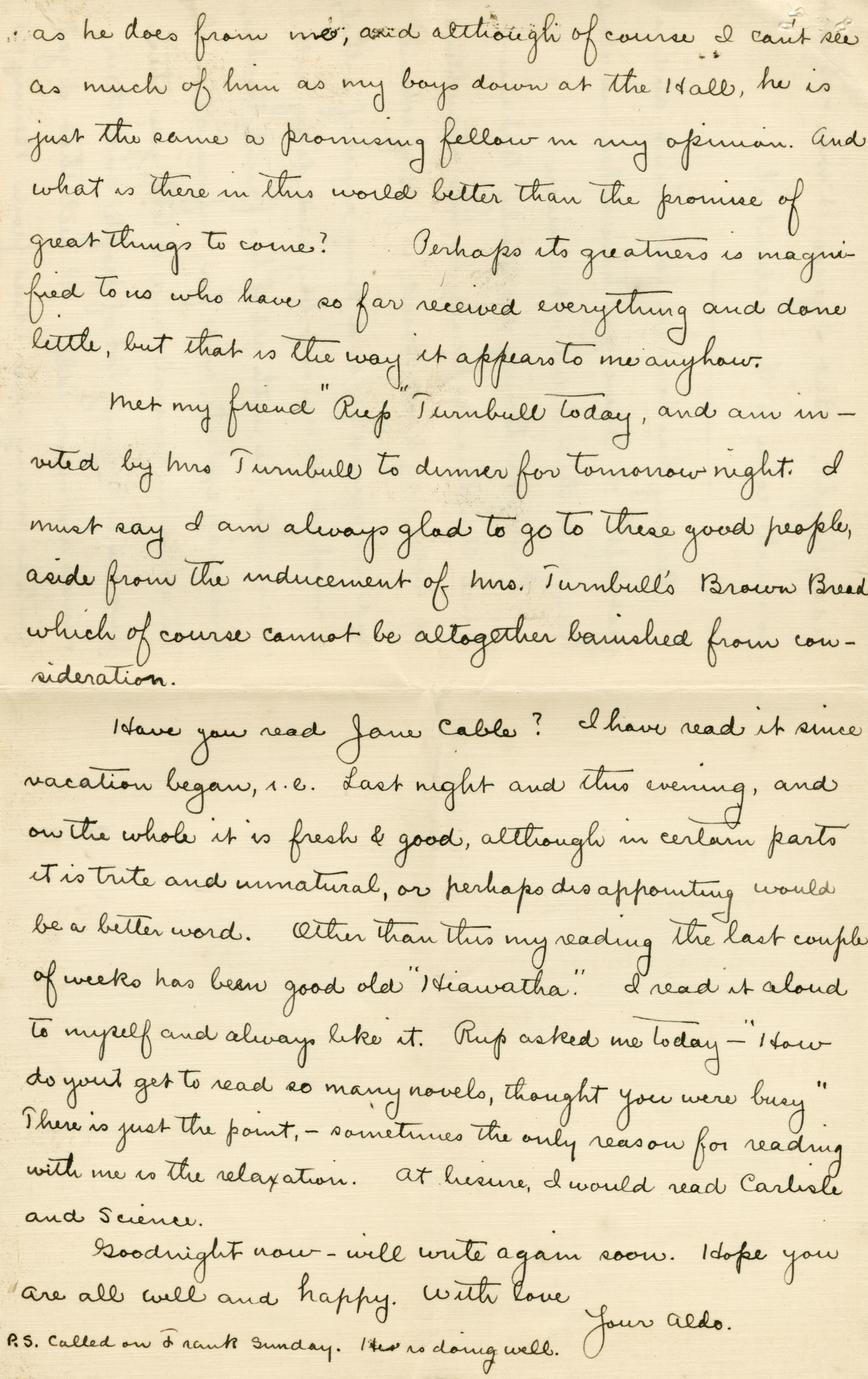 as he does from me, and although of course I can't see
as much of him as my boys down at the Hall, he is
just the same a promising fellow in my opinion. And
what is there in this world better than the promise of
great things to come? Perhaps its greatness is magni-
fied to us who have so far received everything and done
little, but that is the way it appears to me anyhow.
Met my friend "Rup" Turnbull today, and am in-
vited by Mrs Turnbull to dinner for tomorrow night. I
must say I am always glad to go to these good people,
aside from the inducement of Mrs. Turnbull's Brown Bread
which of course cannot be altogether banished from con-
sideration.
Have you read Jane Cable? I have read it since
vacation began, i.e. Last night and this evening, and
on the whole it is fresh & good, although in certain parts
it is trite and unnatural, or perhaps disappointing would
be a better word. Other than this my reading the last couple
of weeks has been good old "Hiawatha." I read it aloud
to myself and always like it. Rup asked me today – "How
do you get to read so many novels, thought you were busy"
There is just the point, – sometimes the only reason for reading
with me is the relaxation. At liesure, I would read Carlisle
and Science.
Goodnight now – will write again soon. Hope you
are all well and happy. With love
Your Aldo.
P.S. Called on Frank Sunday. He is doing well.